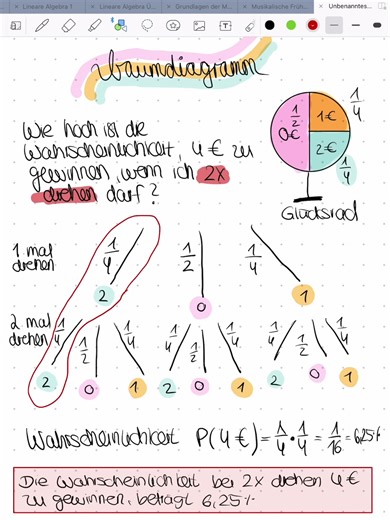 Lineare Algebra 1
Lineare Algebra Ü
Grundlagen der M
Musikalische Früh
Unbenanntes
Baumdiagramm
Wie hoch ist die
Wahrscheinlichkeit, 4€ zu
gewinnen, wenn ich 2x
drehen darf?
1/2
0€
1€
1/4
2€
1/4
Glücksrad
1 mal
drehen
1/4
1/2
1/4
2
0
1
2 mal
drehen
1/4
1/2
1/4
1/4
1/2
1/4
1/4
1/2
1/4
2
0
1
2
0
1
2
0
1
Wahrscheinlichkeit P(4€) = 1/4 · 1/4 = 1/16 = 6,25%
Die Wahrscheinlichkeit bei 2x drehen 4€
zu gewinnen, beträgt 6,25%